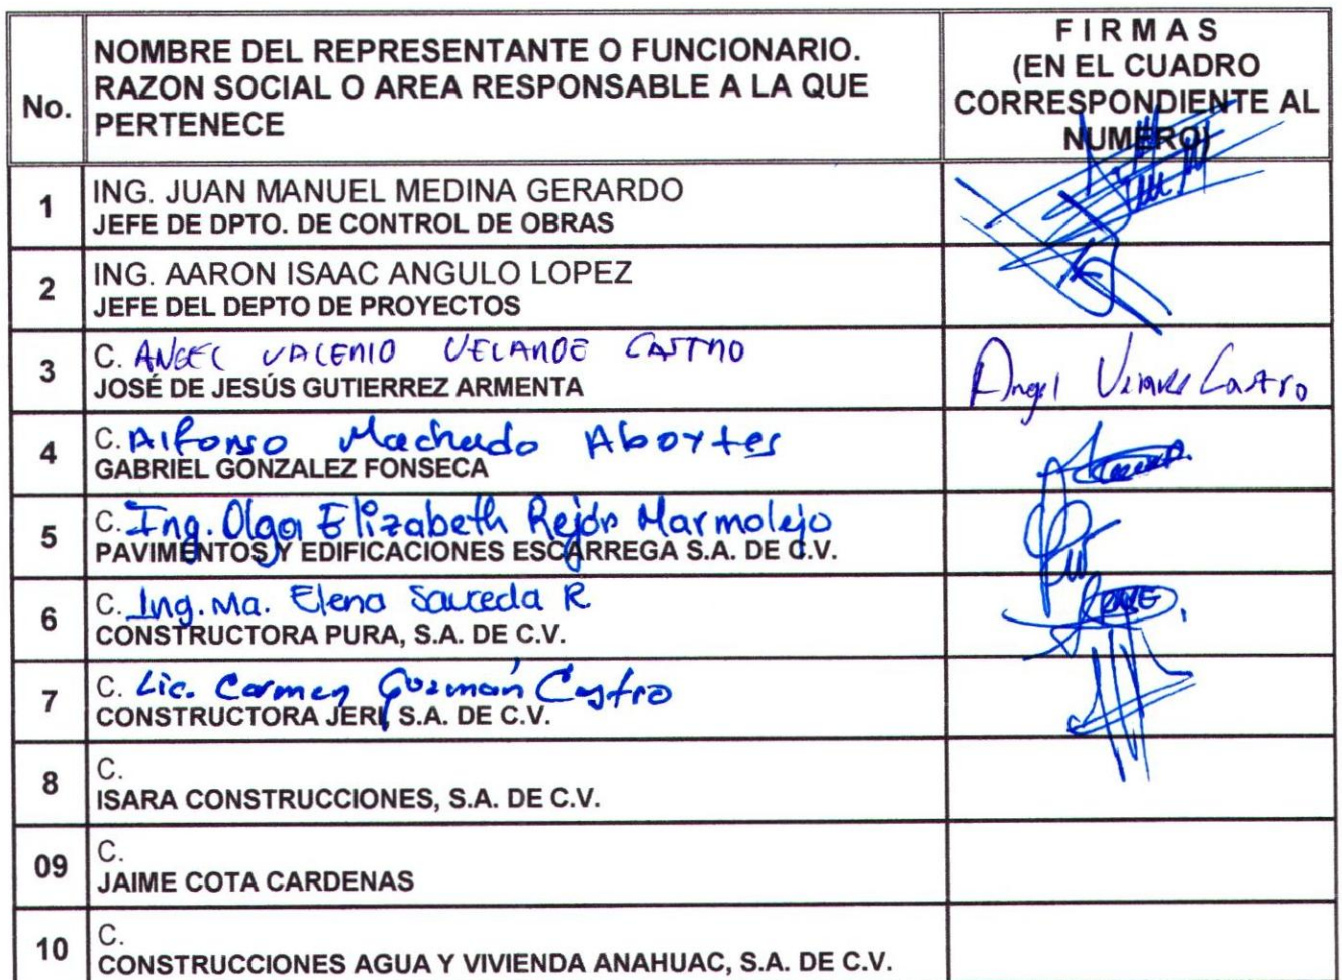 No.
NOMBRE DEL REPRESENTANTE O FUNCIONARIO.
RAZON SOCIAL O AREA RESPONSABLE A LA QUE
PERTENECE
F I R M A S
(EN EL CUADRO
CORRESPONDIENTE AL
NUMERO)
1
ING. JUAN MANUEL MEDINA GERARDO
JEFE DE DPTO. DE CONTROL DE OBRAS
2
ING. AARON ISAAC ANGULO LOPEZ
JEFE DEL DEPTO DE PROYECTOS
3
C. ANGEL VALENIO VELARDE CASTRO
JOSÉ DE JESÚS GUTIERREZ ARMENTA
Angel Castro
4
C. Alfonso Machado Aboytes
GABRIEL GONZALEZ FONSECA
5
C. Ing. Olga Elizabeth Rejón Marmolejo
PAVIMENTOS Y EDIFICACIONES ESCARREGA S.A. DE C.V.
6
C. Ing. Ma. Elena Sauceda R
CONSTRUCTORA PURA, S.A. DE C.V.
7
C. Lic. Carmen Guzmán Castro
CONSTRUCTORA JERI, S.A. DE C.V.
8
C.
ISARA CONSTRUCCIONES, S.A. DE C.V.
09
C.
JAIME COTA CARDENAS
10
C.
CONSTRUCCIONES AGUA Y VIVIENDA ANAHUAC, S.A. DE C.V.